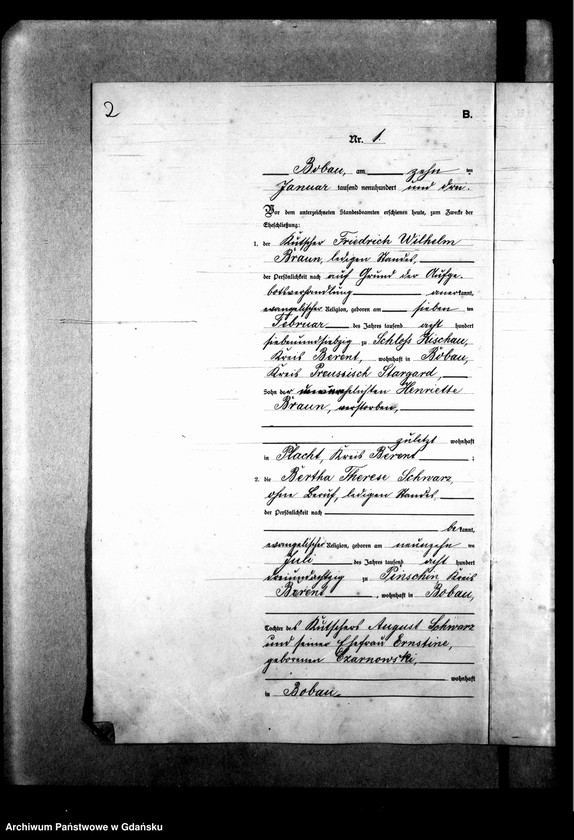 2
B.
Nr. 1.
Bobau, am zehn ten
Januar tausend neunhundert und drei.
Vor dem unterzeichneten Standesbeamten erschienen heute, zum Zwecke der
Eheschließung:
1. der Kutscher Friedrich Wilhelm
Braun, ledigen Standes,
der Persönlichkeit nach auf Grund der Aufge-
botsverhandlung anerkannt,
evangelischer Religion, geboren am sieben ten
Februar des Jahres tausend acht hundert
siebenundsiebzig zu Schloß Kischau,
Kreis Berent, wohnhaft in Bobau,
Kreis Preussisch Stargard,
Sohn der unverehelichten Henriette
Braun, verstorben,
zuletzt wohnhaft
in Placht, Kreis Berent ;
2. die Bertha Therese Schwarz,
ohne Beruf, ledigen Standes
der Persönlichkeit nach
be kannt,
evangelischer Religion, geboren am neunzehn ten
Juli des Jahres tausend acht hundert
dreiundachtzig zu Pinschin Kreis
Berent, wohnhaft in Bobau,
Tochter des Kutschers August Schwarz
und seiner Ehefrau Ernstine,
geborenen Czarnowski,
wohnhaft
in Bobau.
Archiwum Państwowe w Gdańsku